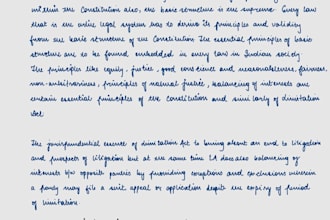 within the Constitution also, the basic structure is the supreme. Every law
that is in entire legal system has to derive its principles and validity
from the basic structure of the Constitution. The essential principles of basic
structure are to be found embedded in every law in Indian society.
The principles like equity, justice, good conscience and reasonableness, fairness,
non-arbitrariness, principles of natural justice, balancing of interests are
certain essential principles of the Constitution and similarly of limitation
Act.
The jurisprudential essence of limitation Act is bring about an end to litigation
and prospects of litigation but at the same time LA does also balancing of
interests b/w opposite parties by providing exceptions and exclusions wherein
a party may file a suit appeal or application despite the expiry of period
of limitation.